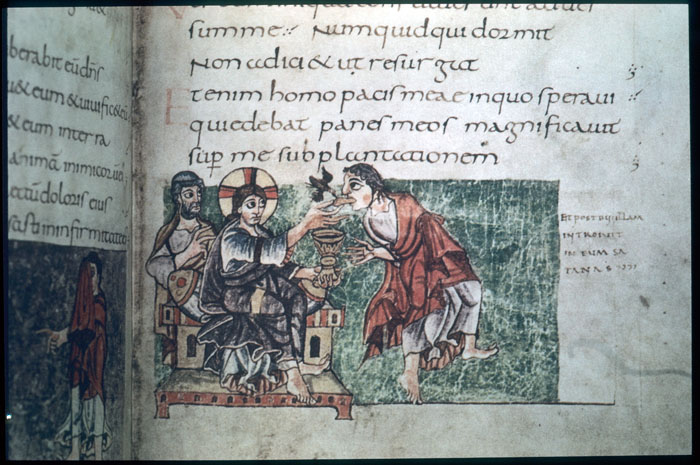 berabit eū dn̄s
& eum & uiuific& eū
& eum interra
animā inimicorū
ctū doloris eius
summe Numquid qui dormit
Non adici& ut resurgat
Etenim homo pacis meae inquo speraui
quiedebat panes meos magnificauit
sup̄ me subplantationem
Et post bucillam
introiuit
in eum sa
tanas